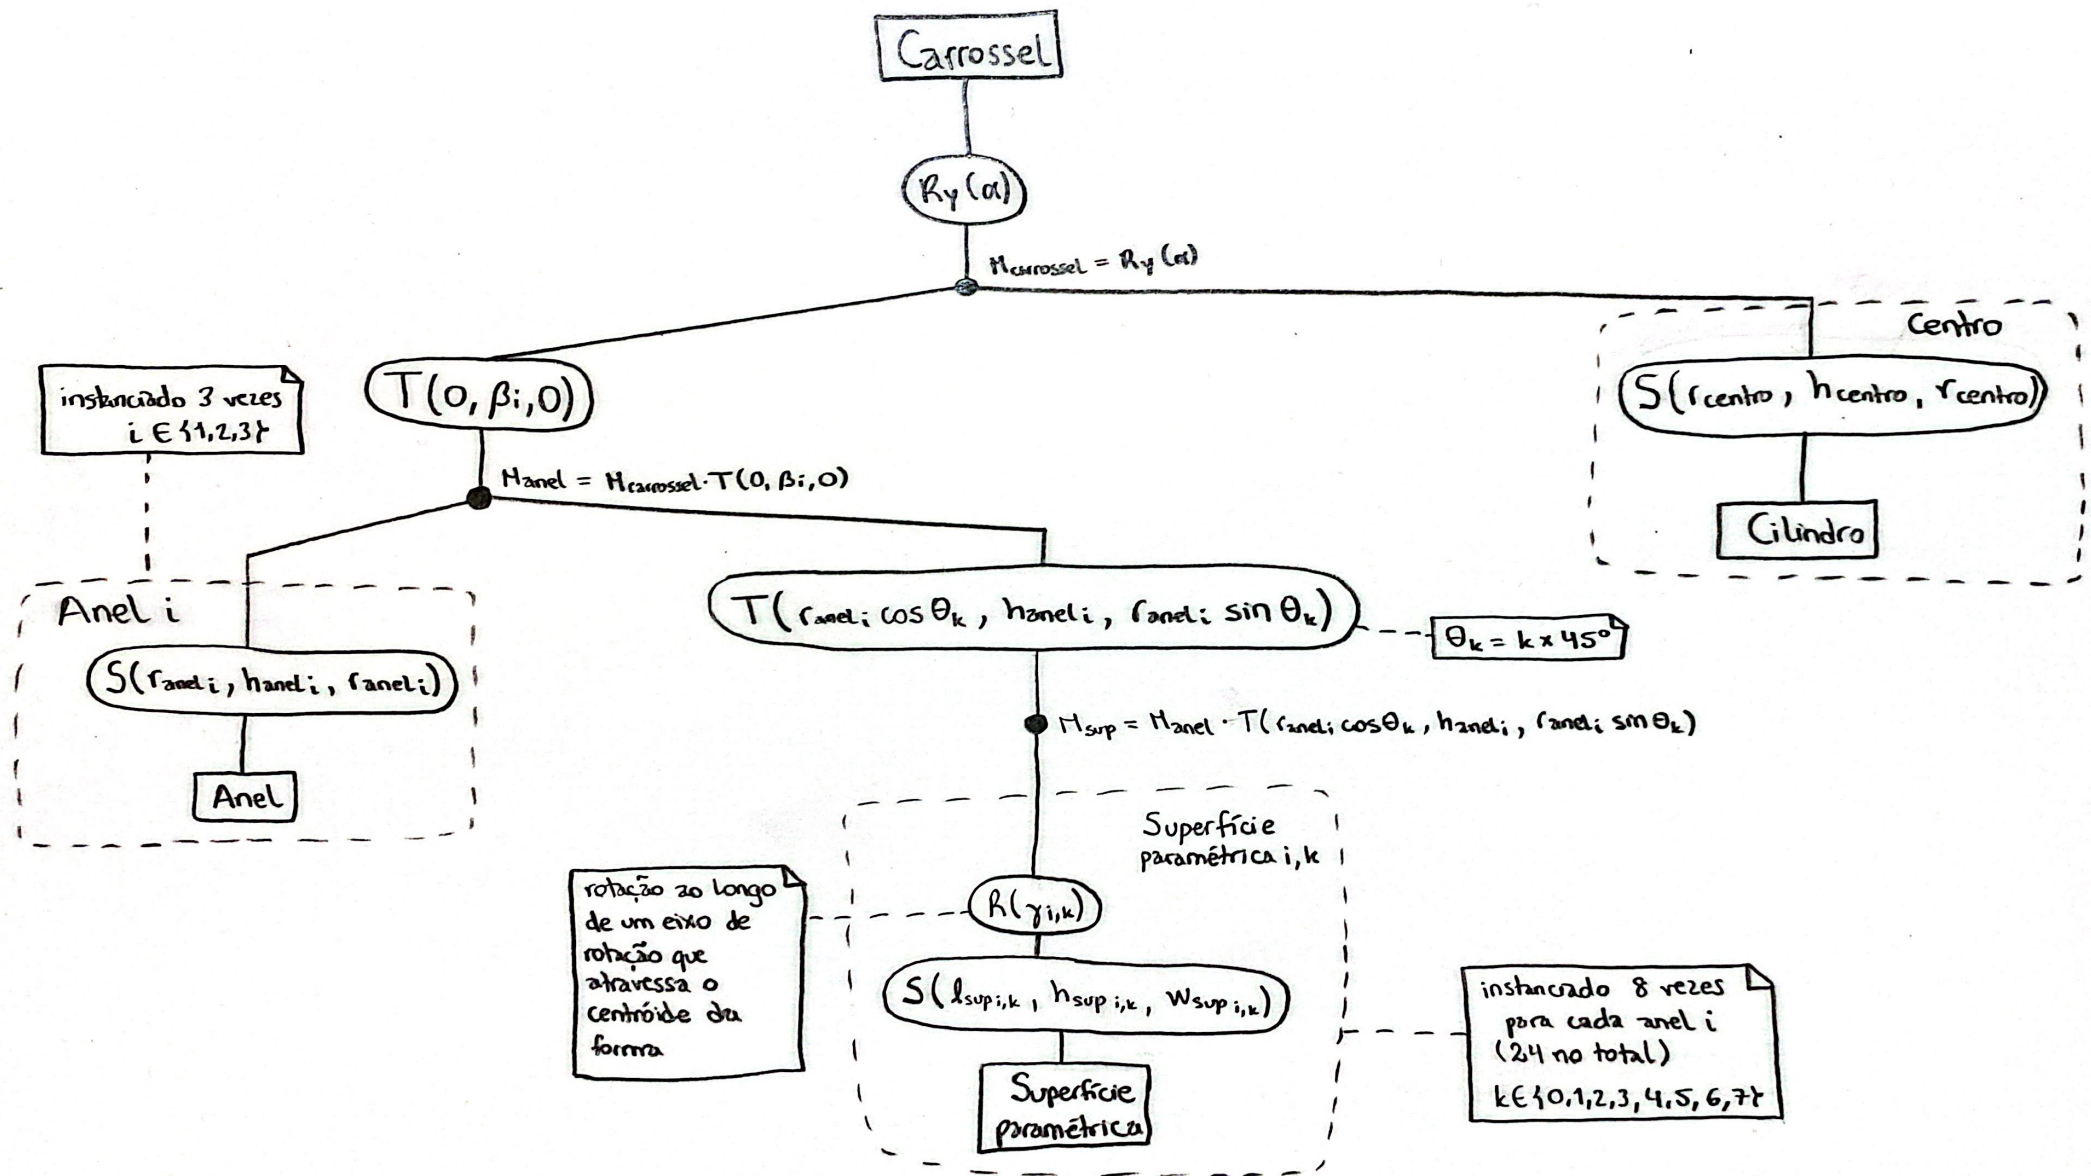 Carrossel
Ry(α)
Mcarrossel = Ry(α)
Centro
S(rcentro, hcentro, rcentro)
Cilindro
T(0, βi, 0)
instanciado 3 vezes
i ∈ {1,2,3}
Manel = Mcarrossel · T(0, βi, 0)
Anel i
S(raneli, haneli, raneli)
Anel
T(raneli cos θk, haneli, raneli sin θk)
θk = k × 45°
Msup = Manel · T(raneli cos θk, haneli, raneli sin θk)
Superfície
paramétrica i,k
rotação ao longo
de um eixo de
rotação que
atravessa o
centróide da
forma
R(γi,k)
S(lsup i,k, hsup i,k, wsup i,k)
Superfície
paramétrica
instanciado 8 vezes
para cada anel i
(24 no total)
k ∈ {0,1,2,3,4,5,6,7}